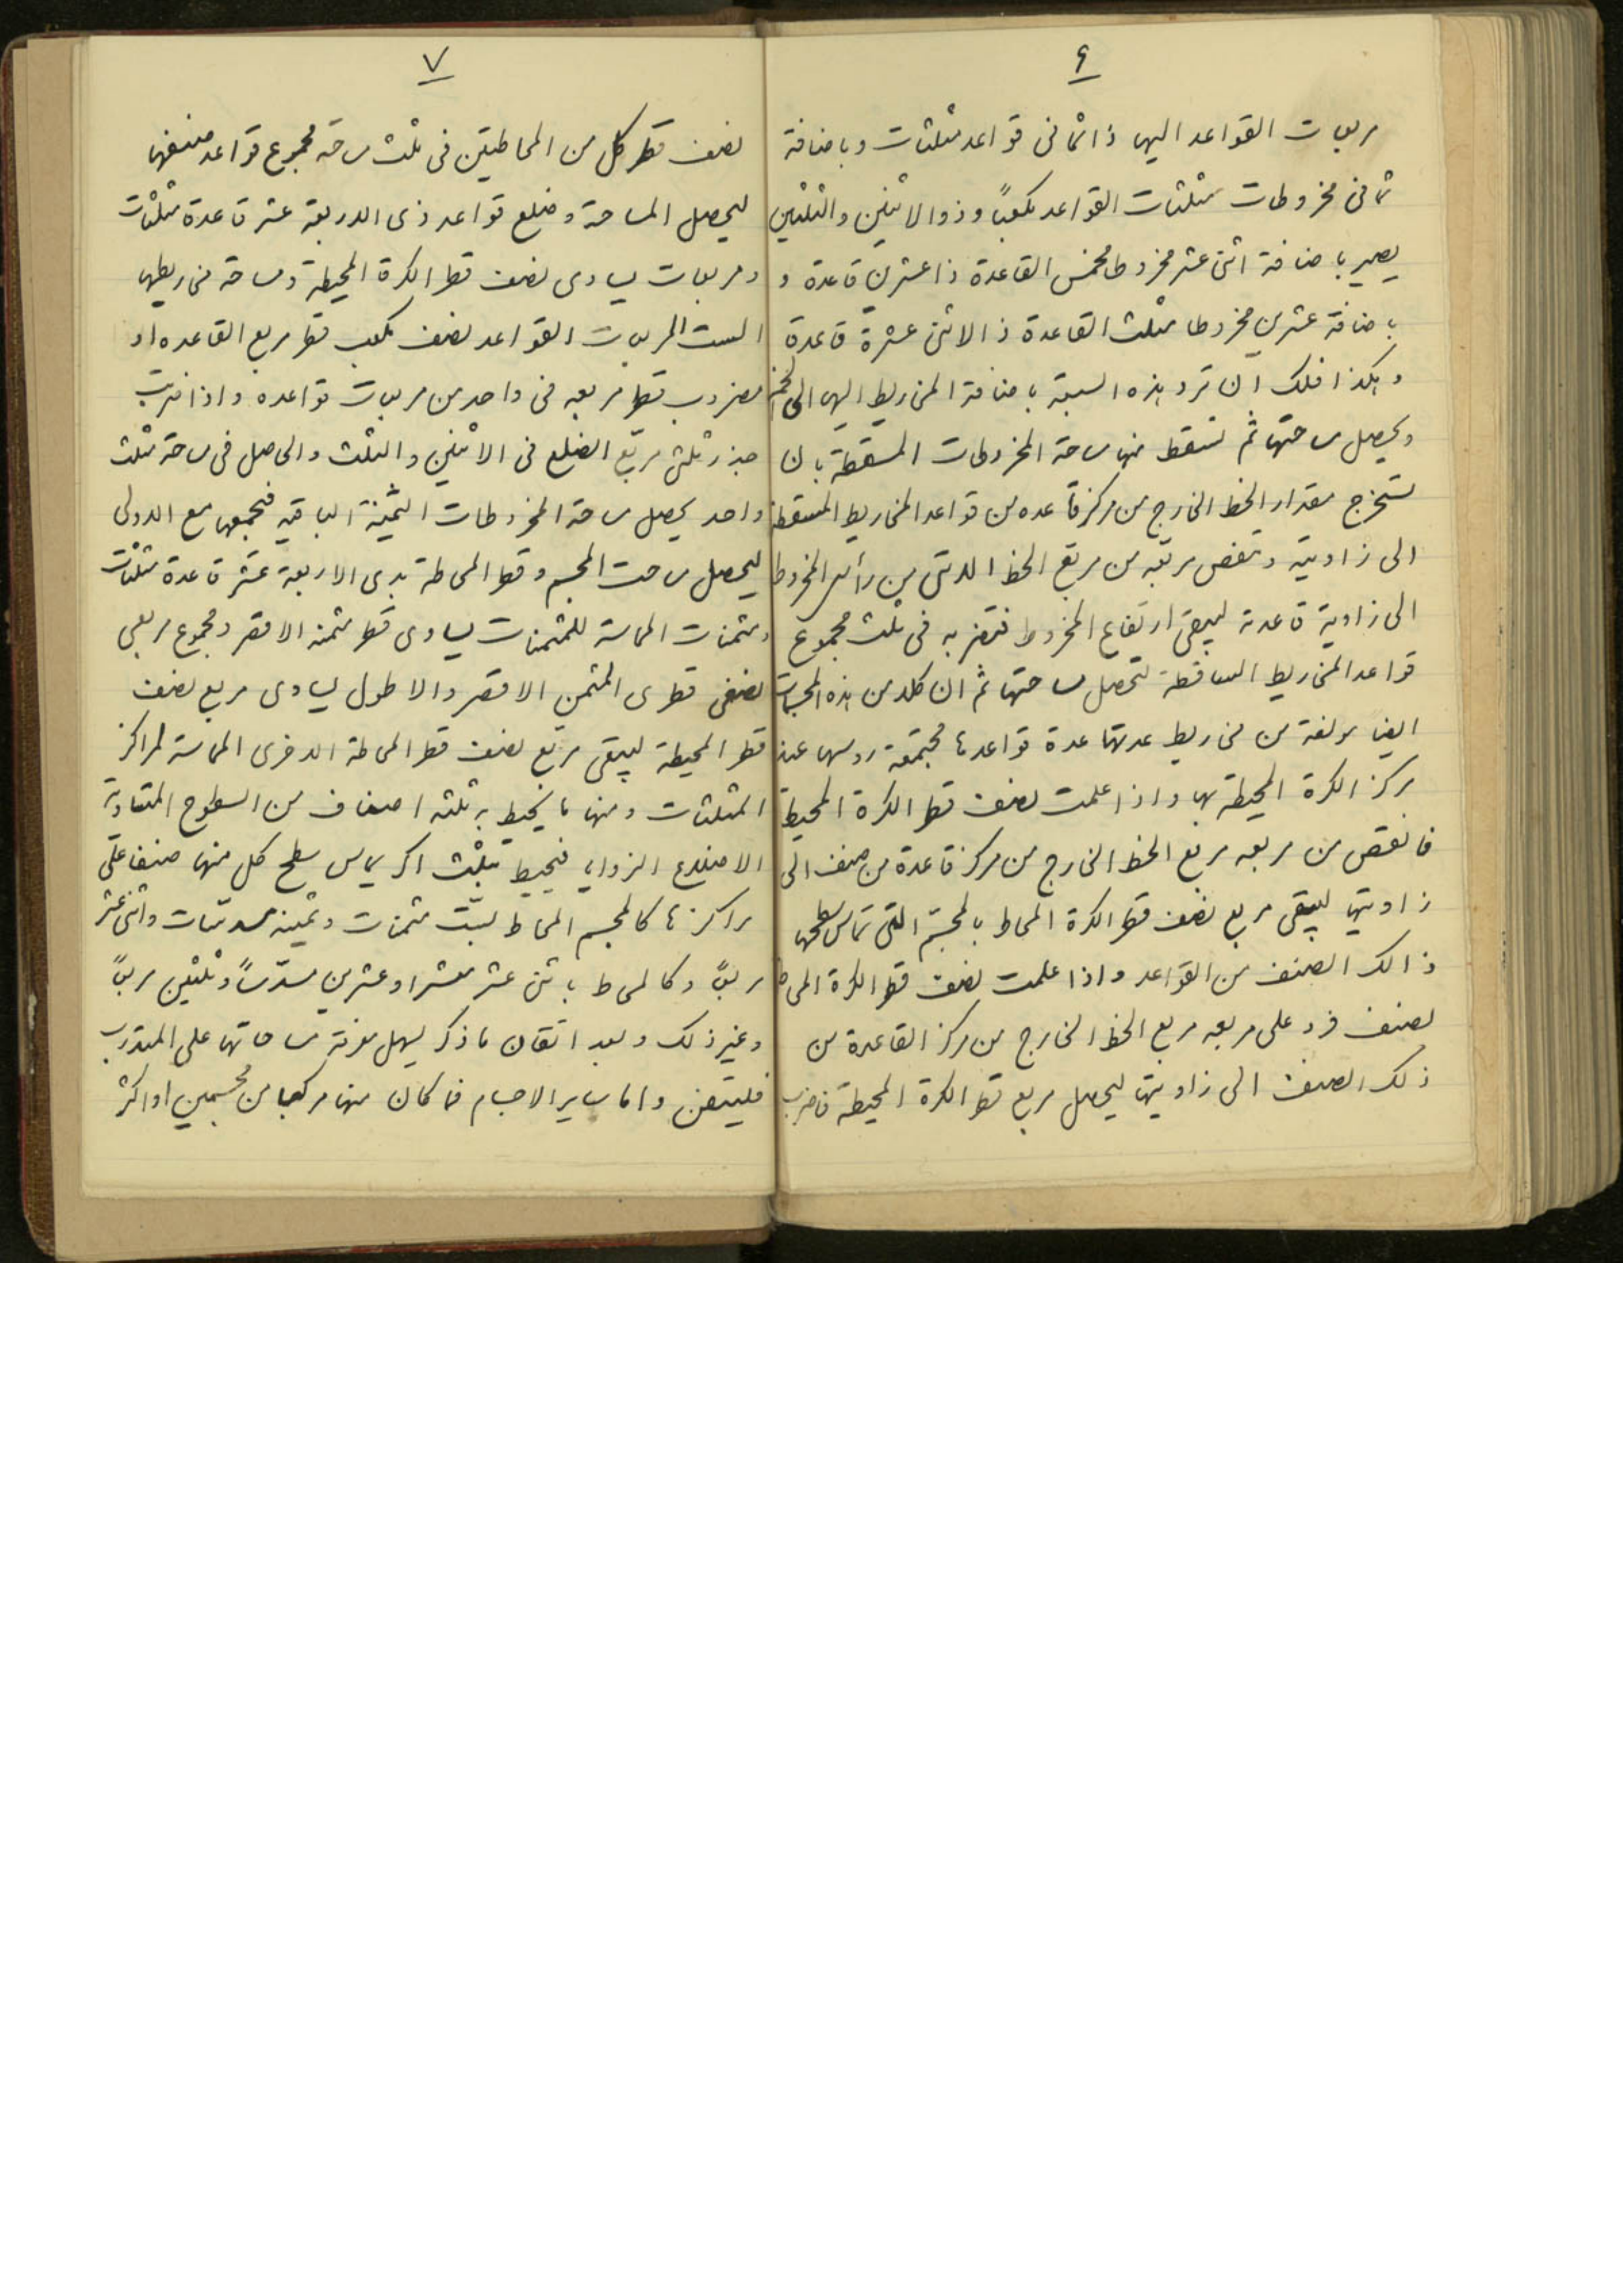 ٦
مربعات القواعد اليها ذا ثمانى قواعد مثلثات وباضافة
ثمانى مخروطات مثلثات القواعد مكعباً وذو الاثنين والثلثين
يصير باضافة اثنى عشر مخروطا مخمس القاعدة ذا عشرين قاعدة و
باضافة عشرين مخروطا مثلث القاعدة ذا لاثنى عشرة قاعدة
وهكذا فلك ان ترد هذه السبعة باضافة المخاريط اليها الى
ويحصل مساحتها ثم تسقط منها مساحة المخروطات المسقطة بان
تستخرج مقدار الخط الخارج من مركز قاعده من قواعد المخاريط المسقطة
الى زاويته وتنقص مربعه من مربع الخط الاتى من رأس المخروط
الى زاوية قاعدته ليبقى ارتفاع المخروط فتضربه فى ثلث مجموع
قواعد المخاريط الساقطة لتحصل مساحتها ثم ان كلا من هذه المجسمات
ايضا مولفة من مخاريط عدتها عدة قواعدها مجتمعة روسها عند
مركز الكرة المحيطة بها واذا علمت نصف قطر الكرة المحيطة
فانقص من مربعه مربع الخط الخارج من مركز قاعدة من صنف الى
زاويتها ليبقى مربع نصف قطر الكرة المحاط بالمجسم التى تماس سطحها
ذالك الصنف من القواعد واذا علمت نصف قطر الكرة المحاطة
لصنف فزد على مربعه مربع الخط الخارج من مركز القاعدة من
ذلك الصنف الى زاويتها ليحصل مربع قطر الكرة المحيطة فاضرب
٧
نصف قطر كل من المحاطتين فى ثلث مساحة مجموع قواعد صنفها
ليحصل المساحة وضلع قواعد ذى الاربعة عشر قاعدة مثلثات
ومربعات يساوى نصف قطر الكرة المحيطة ومساحة مخاريطها
الست المربعات القواعد نصف مكعب قطر مربع القاعده او
مضروب قطر مربعه فى واحد من مربعات قواعده واذا ضربت
جذر ثلثى مربع الضلع فى الاثنين والثلث والحاصل فى مساحة مثلث
واحد يحصل مساحة المخروطات الثمينة الباقية فتجمعها مع الاولى
ليحصل مساحت المجسم وقطر المحاطة بذى الاربعة عشر قاعدة مثلثات
ومثمنات المماسة للمثمنات يساوى قطر مثمنه الاقصر ومجموع مربعى
نصفى قطرى المثمن الاقصر والاطول يساوى مربع نصف
قطر المحيطة ليبقى مربع نصف قطر المحاطة الاخرى المماسة لمراكز
المثلثات ومنها ما يحيط به ثلثه اصناف من السطوح المتساوية
الاضلاع الزوايا فيحيط بثلث اكر يماس سطح كل منها صنفا على
مراكزها كالمجسم المحاط بست مثمنات وثمينه مسدسات واثنى عشر
مربعاً وكالمحاط باثنى عشر معشرا وعشرين مسدساً وثلثين مربعاً
وغير ذلك وبعد اتقان ما ذكر يسهل معرفة مساحاتها على المتدرب
فليتقن واما ساير الاجسام فما كان منها مركبا من مجسمين او اكثر